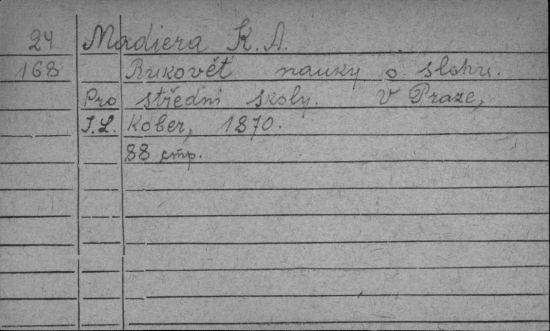 24 Madiera K. A.
168 Rukovět nauky o slohu.
Pro střední školy. V Praze,
I. L. Kober, 1870.
88 стр.